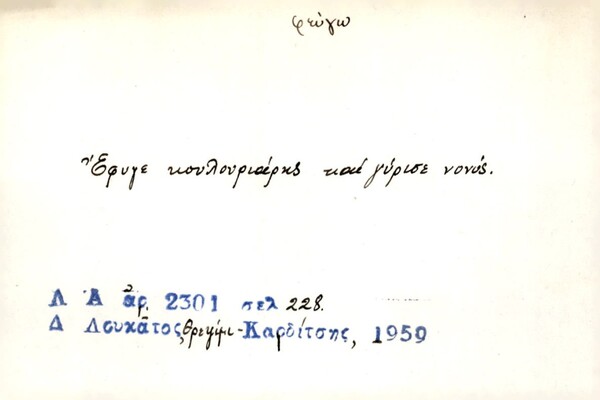 φεύγω
Ἔφυγε κουλουριάρης καί γύρισε νονός.
Λ Ἀ ἀρ. 2301 σελ 228.
Δ Λουκᾶτος, Θρεψίμι-Καρδίτσης, 1959